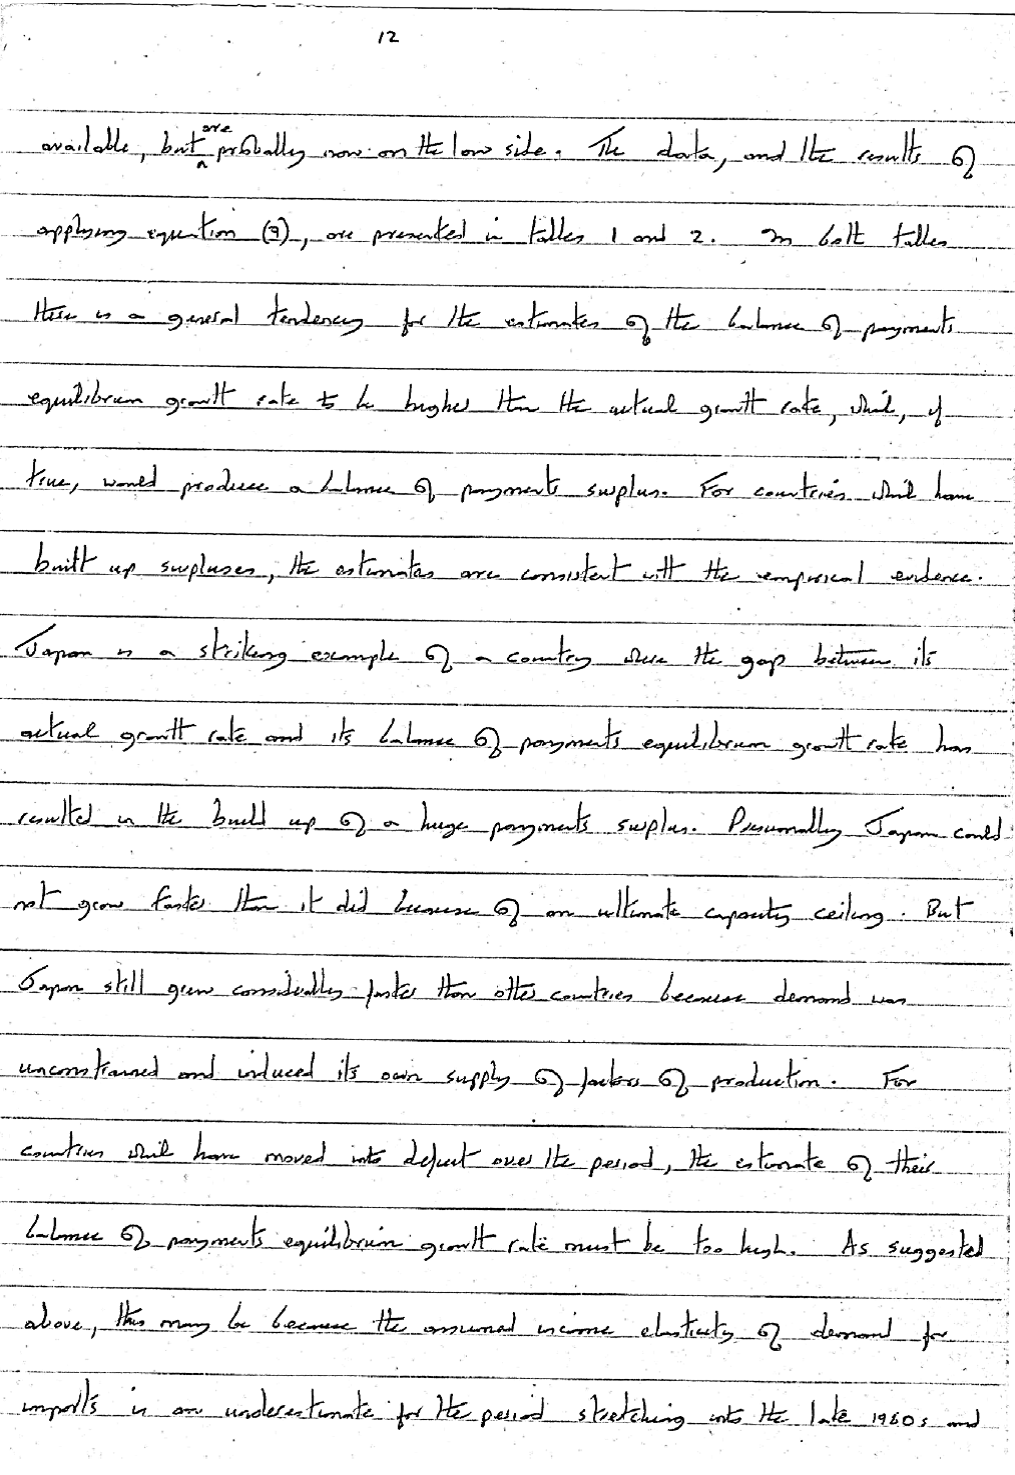 12
are
available, but probably now on the low side. The data, and the results of
applying equation (9), are presented in tables 1 and 2. In both tables
there is a general tendency for the estimates of the balance of payments
equilibrium growth rate to be higher than the actual growth rate, which, if
true, would produce a balance of payments surplus. For countries which have
built up surpluses, the estimates are consistent with the empirical evidence.
Japan is a striking example of a country where the gap between its
actual growth rate and its balance of payments equilibrium growth rate has
resulted in the build up of a huge payments surplus. Presumably Japan could
not grow faster than it did because of an ultimate capacity ceiling. But
Japan still grew considerably faster than other countries because demand was
unconstrained and induced its own supply of factors of production. For
countries which have moved into deficit over the period, the estimate of their
balance of payments equilibrium growth rate must be too high. As suggested
above, this may be because the assumed income elasticity of demand for
imports is an underestimate for the period stretching into the late 1960s and